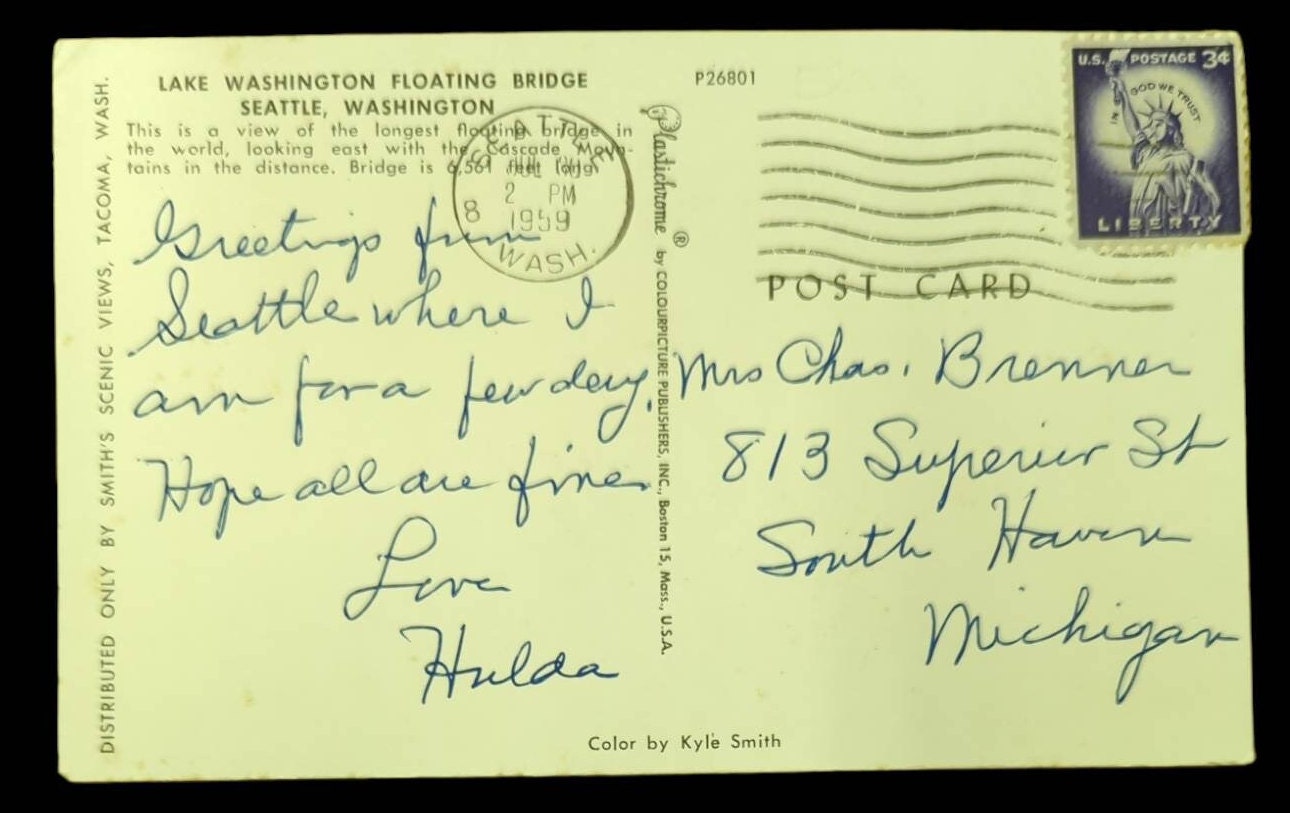 LAKE WASHINGTON FLOATING BRIDGE
SEATTLE, WASHINGTON
This is a view of the longest floating bridge in
the world, looking east with the Cascade Moun-
tains in the distance. Bridge is 6,561 feet long
Greetings from
Seattle where I
am for a few days.
Hope all are fine.
Love
Hulda
DISTRIBUTED ONLY BY SMITH'S SCENIC VIEWS, TACOMA, WASH.
Plastichrome ® by COLOURPICTURE PUBLISHERS, INC., Boston 15, Mass., U.S.A.
P26801
SEATTLE
2 PM
8 1959
WASH.
U.S. POSTAGE 3¢
IN GOD WE TRUST
LIBERTY
POST CARD
Mrs Chas. Brenner
813 Superior St
South Haven
Michigan
Color by Kyle Smith